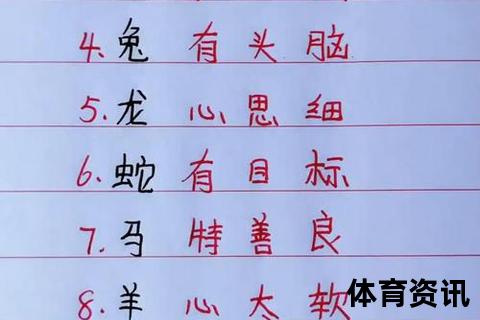 4.兔 有头脑
5.龙 心思细
6.蛇 有目标
7.马 特善良
8.羊 心太软
体育资讯